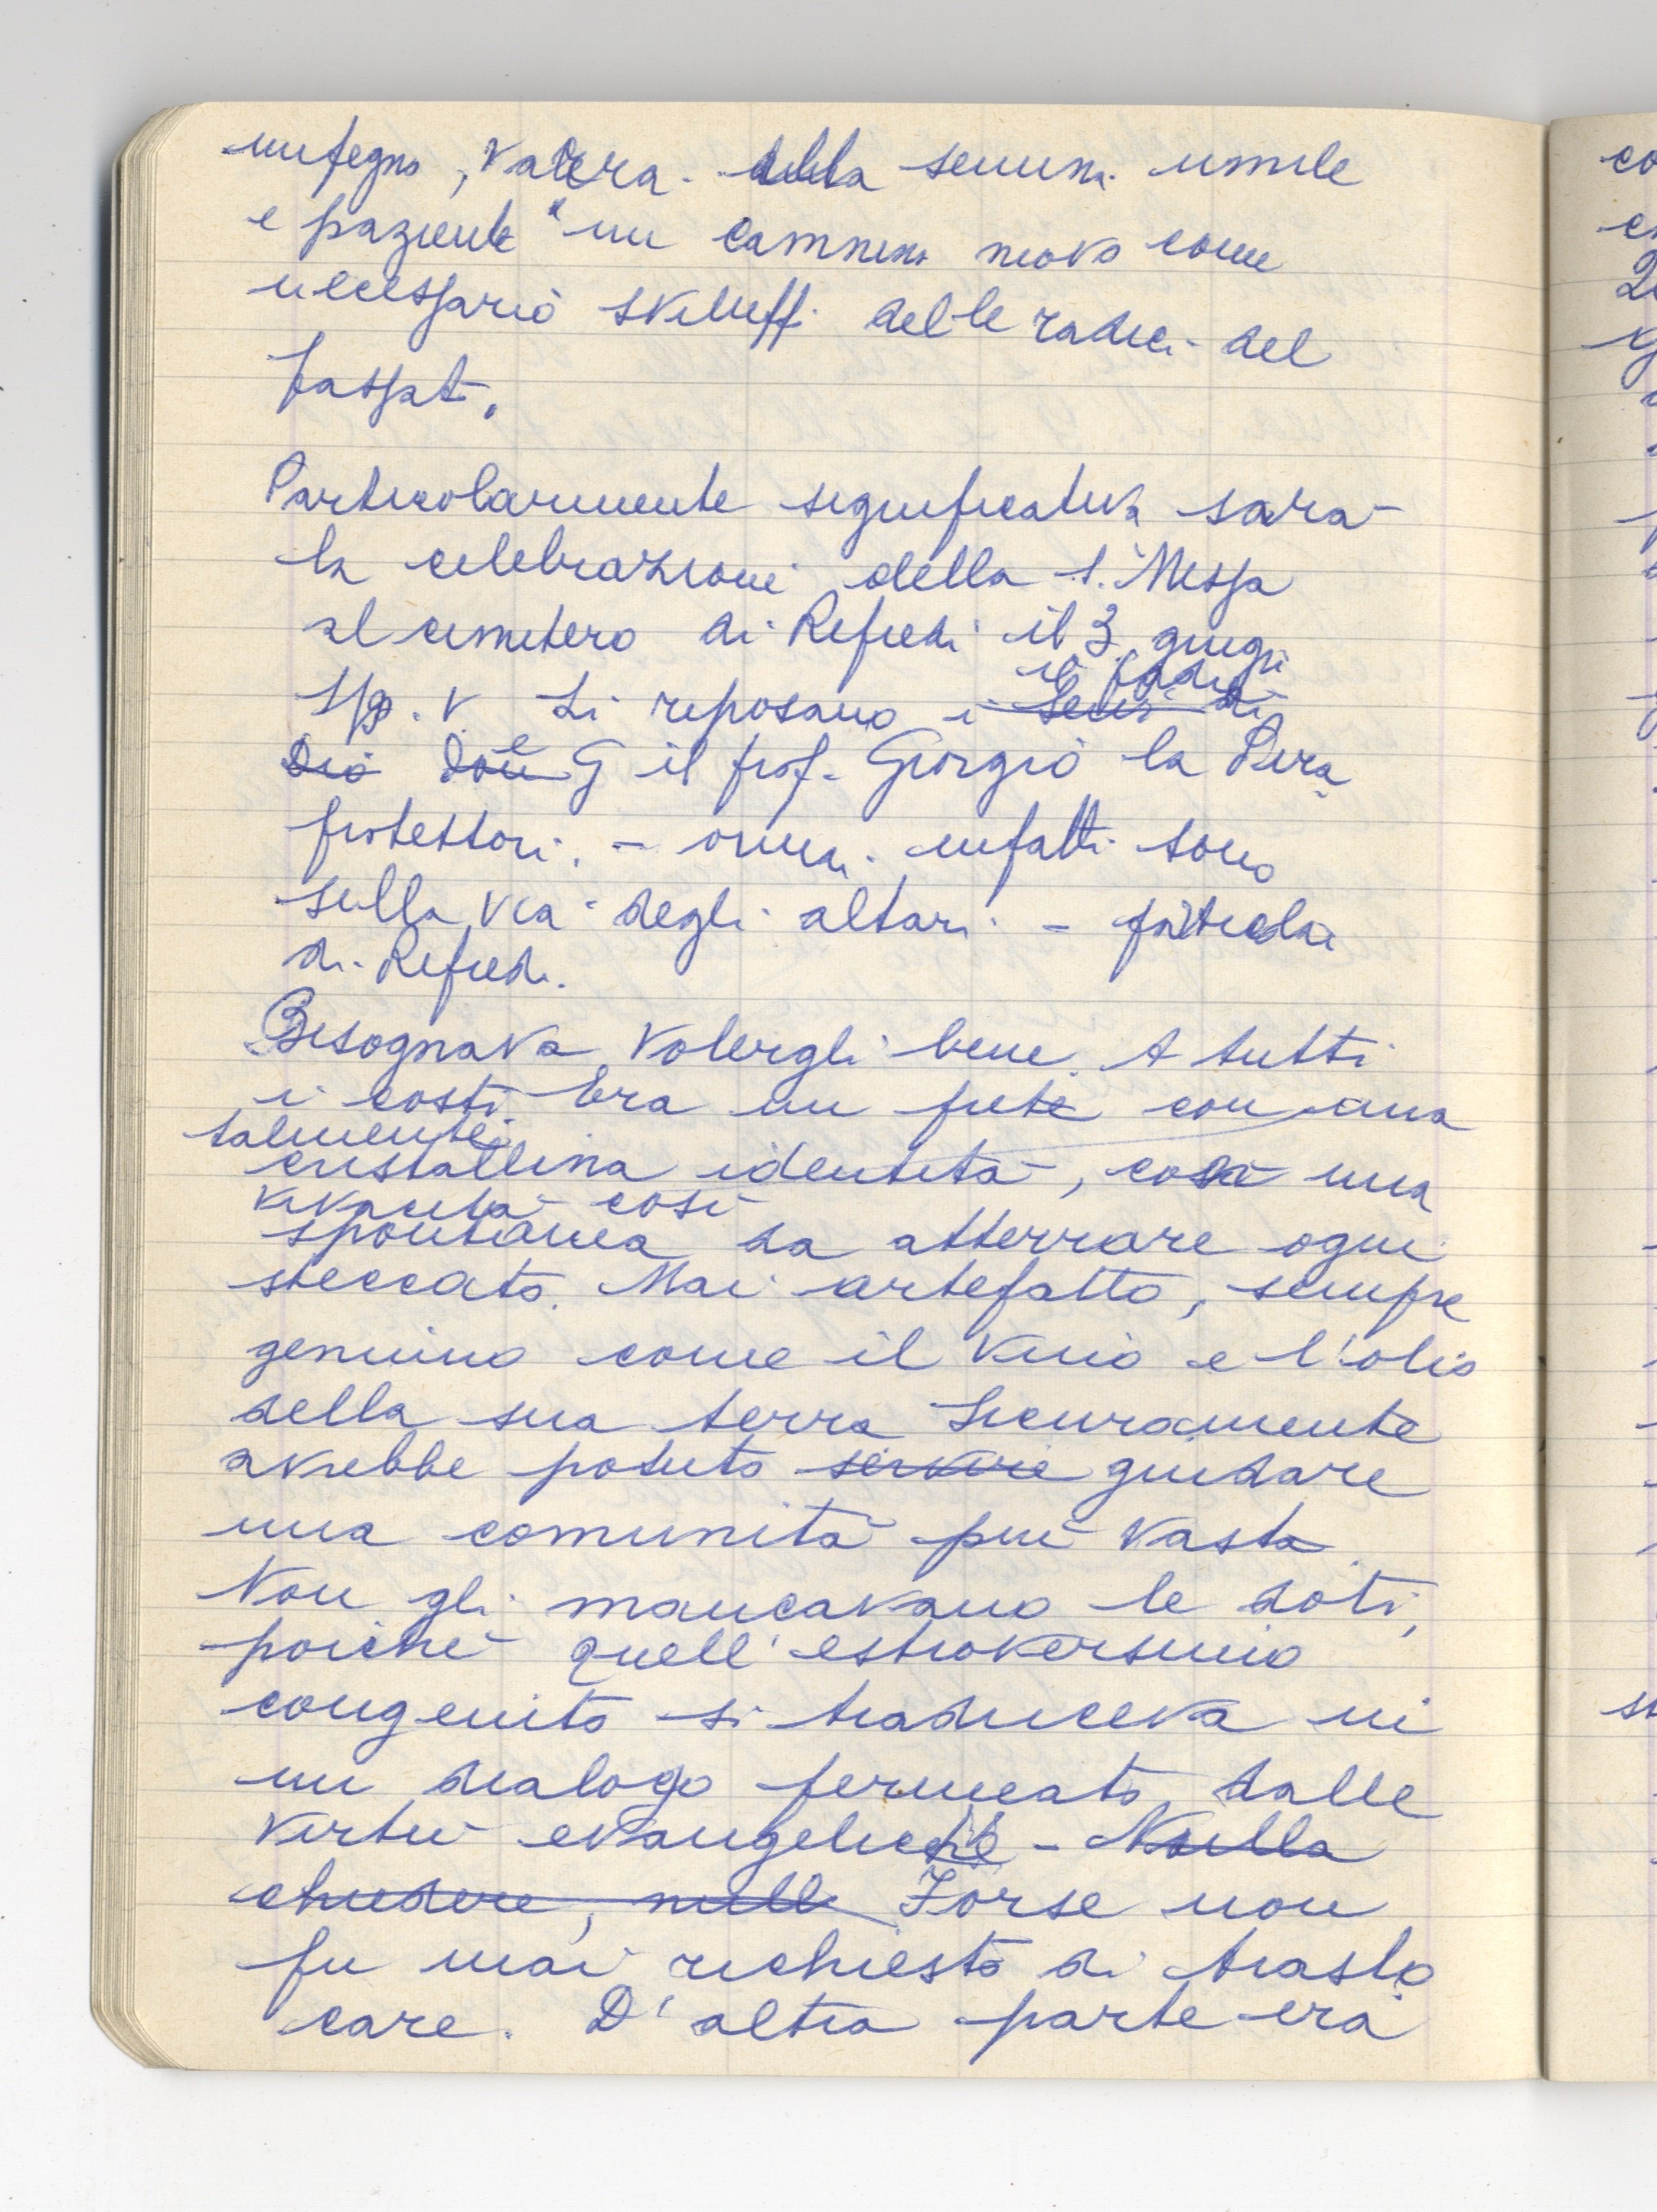 impegno, valera. dalla semina umile
e paziente un cammino nuovo come
necessario sviluppi delle radici del
passato.
Particolarmente significativa sarà
la celebrazione della S. Messa
al cimitero di Rifredi il 3 giugno
Lì riposano i Servi di
il padre
Dio don G e il prof. Giorgio la Pira
protettori. - ormai infatti sono
sulla via degli altari -
di Rifredi.
Bisognava volergli bene. A tutti
i costi. Era un prete con una
talmente
cristallina identità, con una
vivacità così
spontanea da atterrare ogni
steccato. Mai artefatto, sempre
genuino come il vino e l'olio
della sua terra Sicuramente
avrebbe potuto servire guidare
una comunità più vasta.
Non gli mancavano le doti,
poiché quell'estroversimo
congenito si traduceva in
un dialogo permeato dalle
virtù evangeliche - Nulla
chiedere, nulla Forse non
fu mai richiesto di traslo
care. D'altra parte era